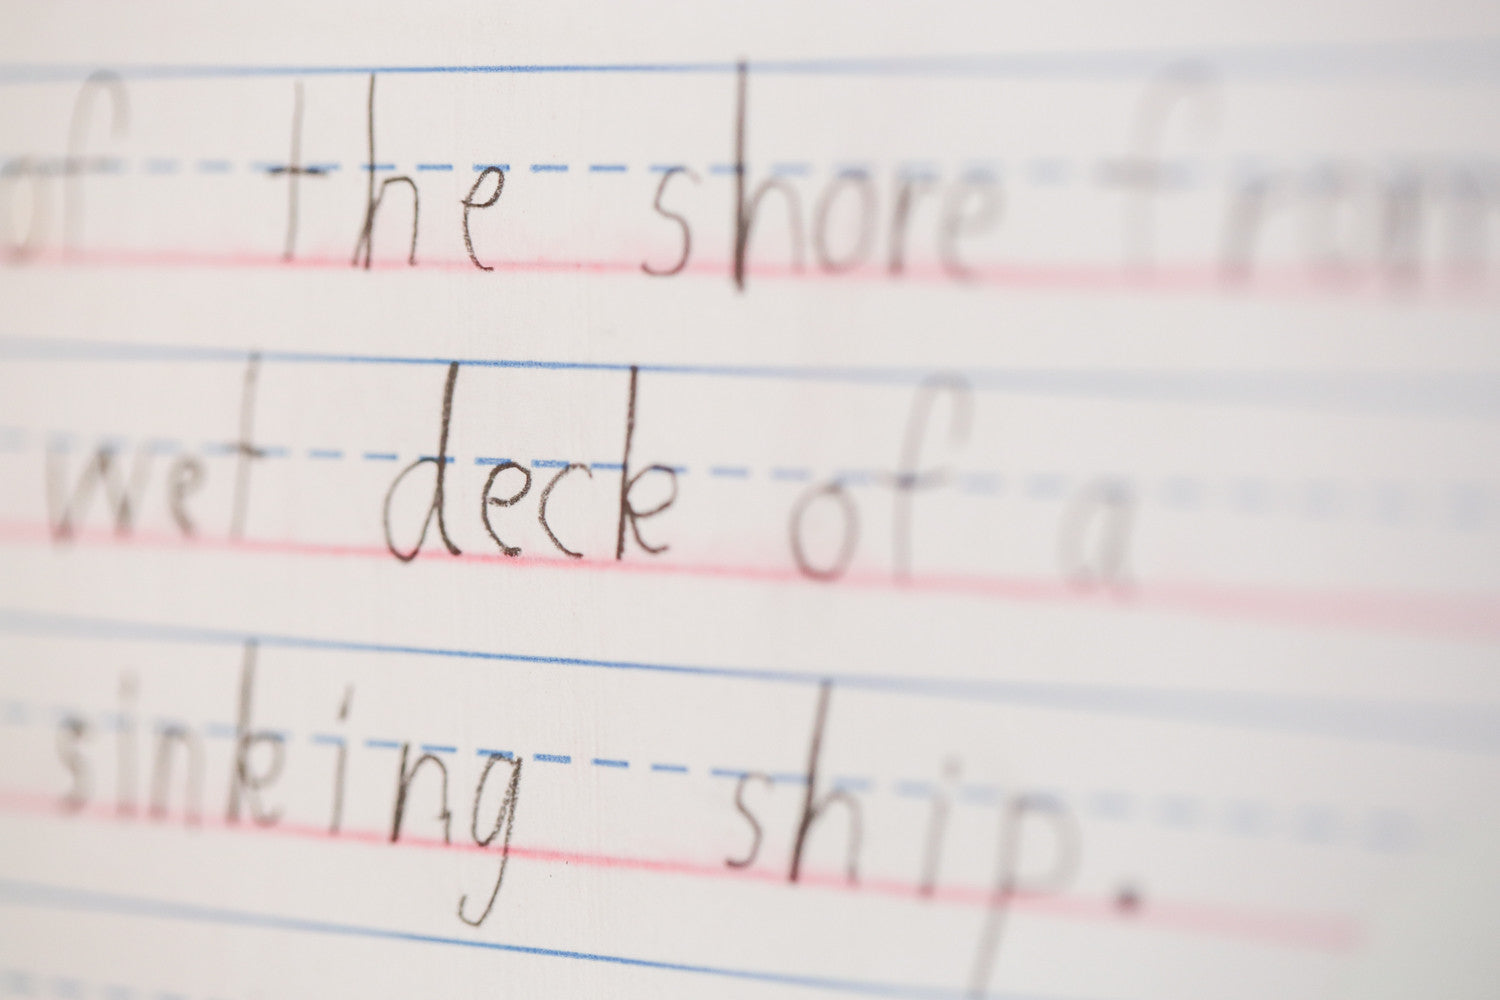 of the shore from
wet deck of a
sinking ship.